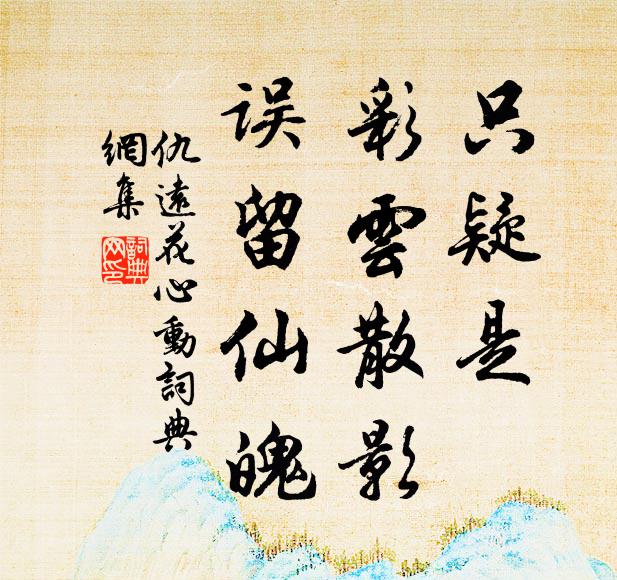 只疑是
彩雲散影
误留仙魄
仇遠花心動詞典
網集
詞典
网印